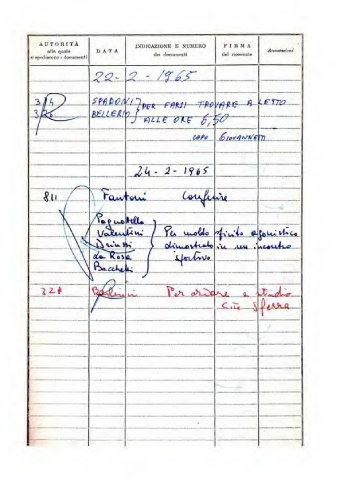 AUTORITÀ alla quale si spediscono i documenti DATA INDICAZIONE E NUMERO dei documenti FIRMA del ricevente Annotazioni
22-2-1965
SPADONI PER FARSI TROVARE A LETTO
BELLERIO ALLE ORE 6,50
CAPO GIOVANNETTI
24-2-1965
811 Fantoni
Valentini Per molto spirito agonistico
dimostrato in un incontro
da Rosa sportivo
Bacchet
328 Per andare a studio